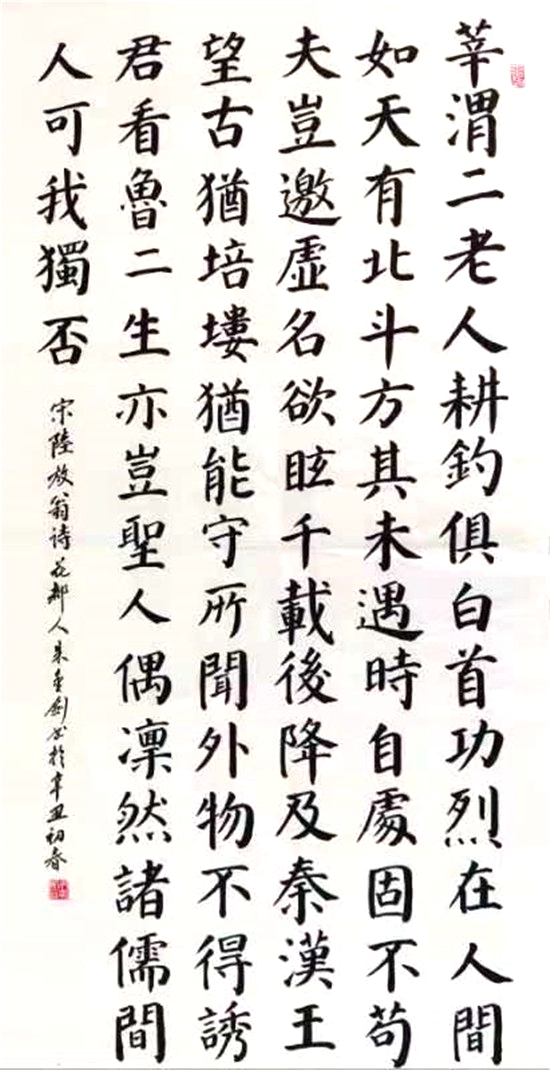 莘渭二老人耕釣俱白首功烈在人間
如天有北斗方其未遇時自處固不苟
夫豈邀虛名欲眩千載後降及秦漢王
望古猶培塿猶能守所聞外物不得誘
君看魯二生亦豈聖人偶凜然諸儒間
人可我獨否
宋陸放翁诗花都人朱重劍书於辛丑初春